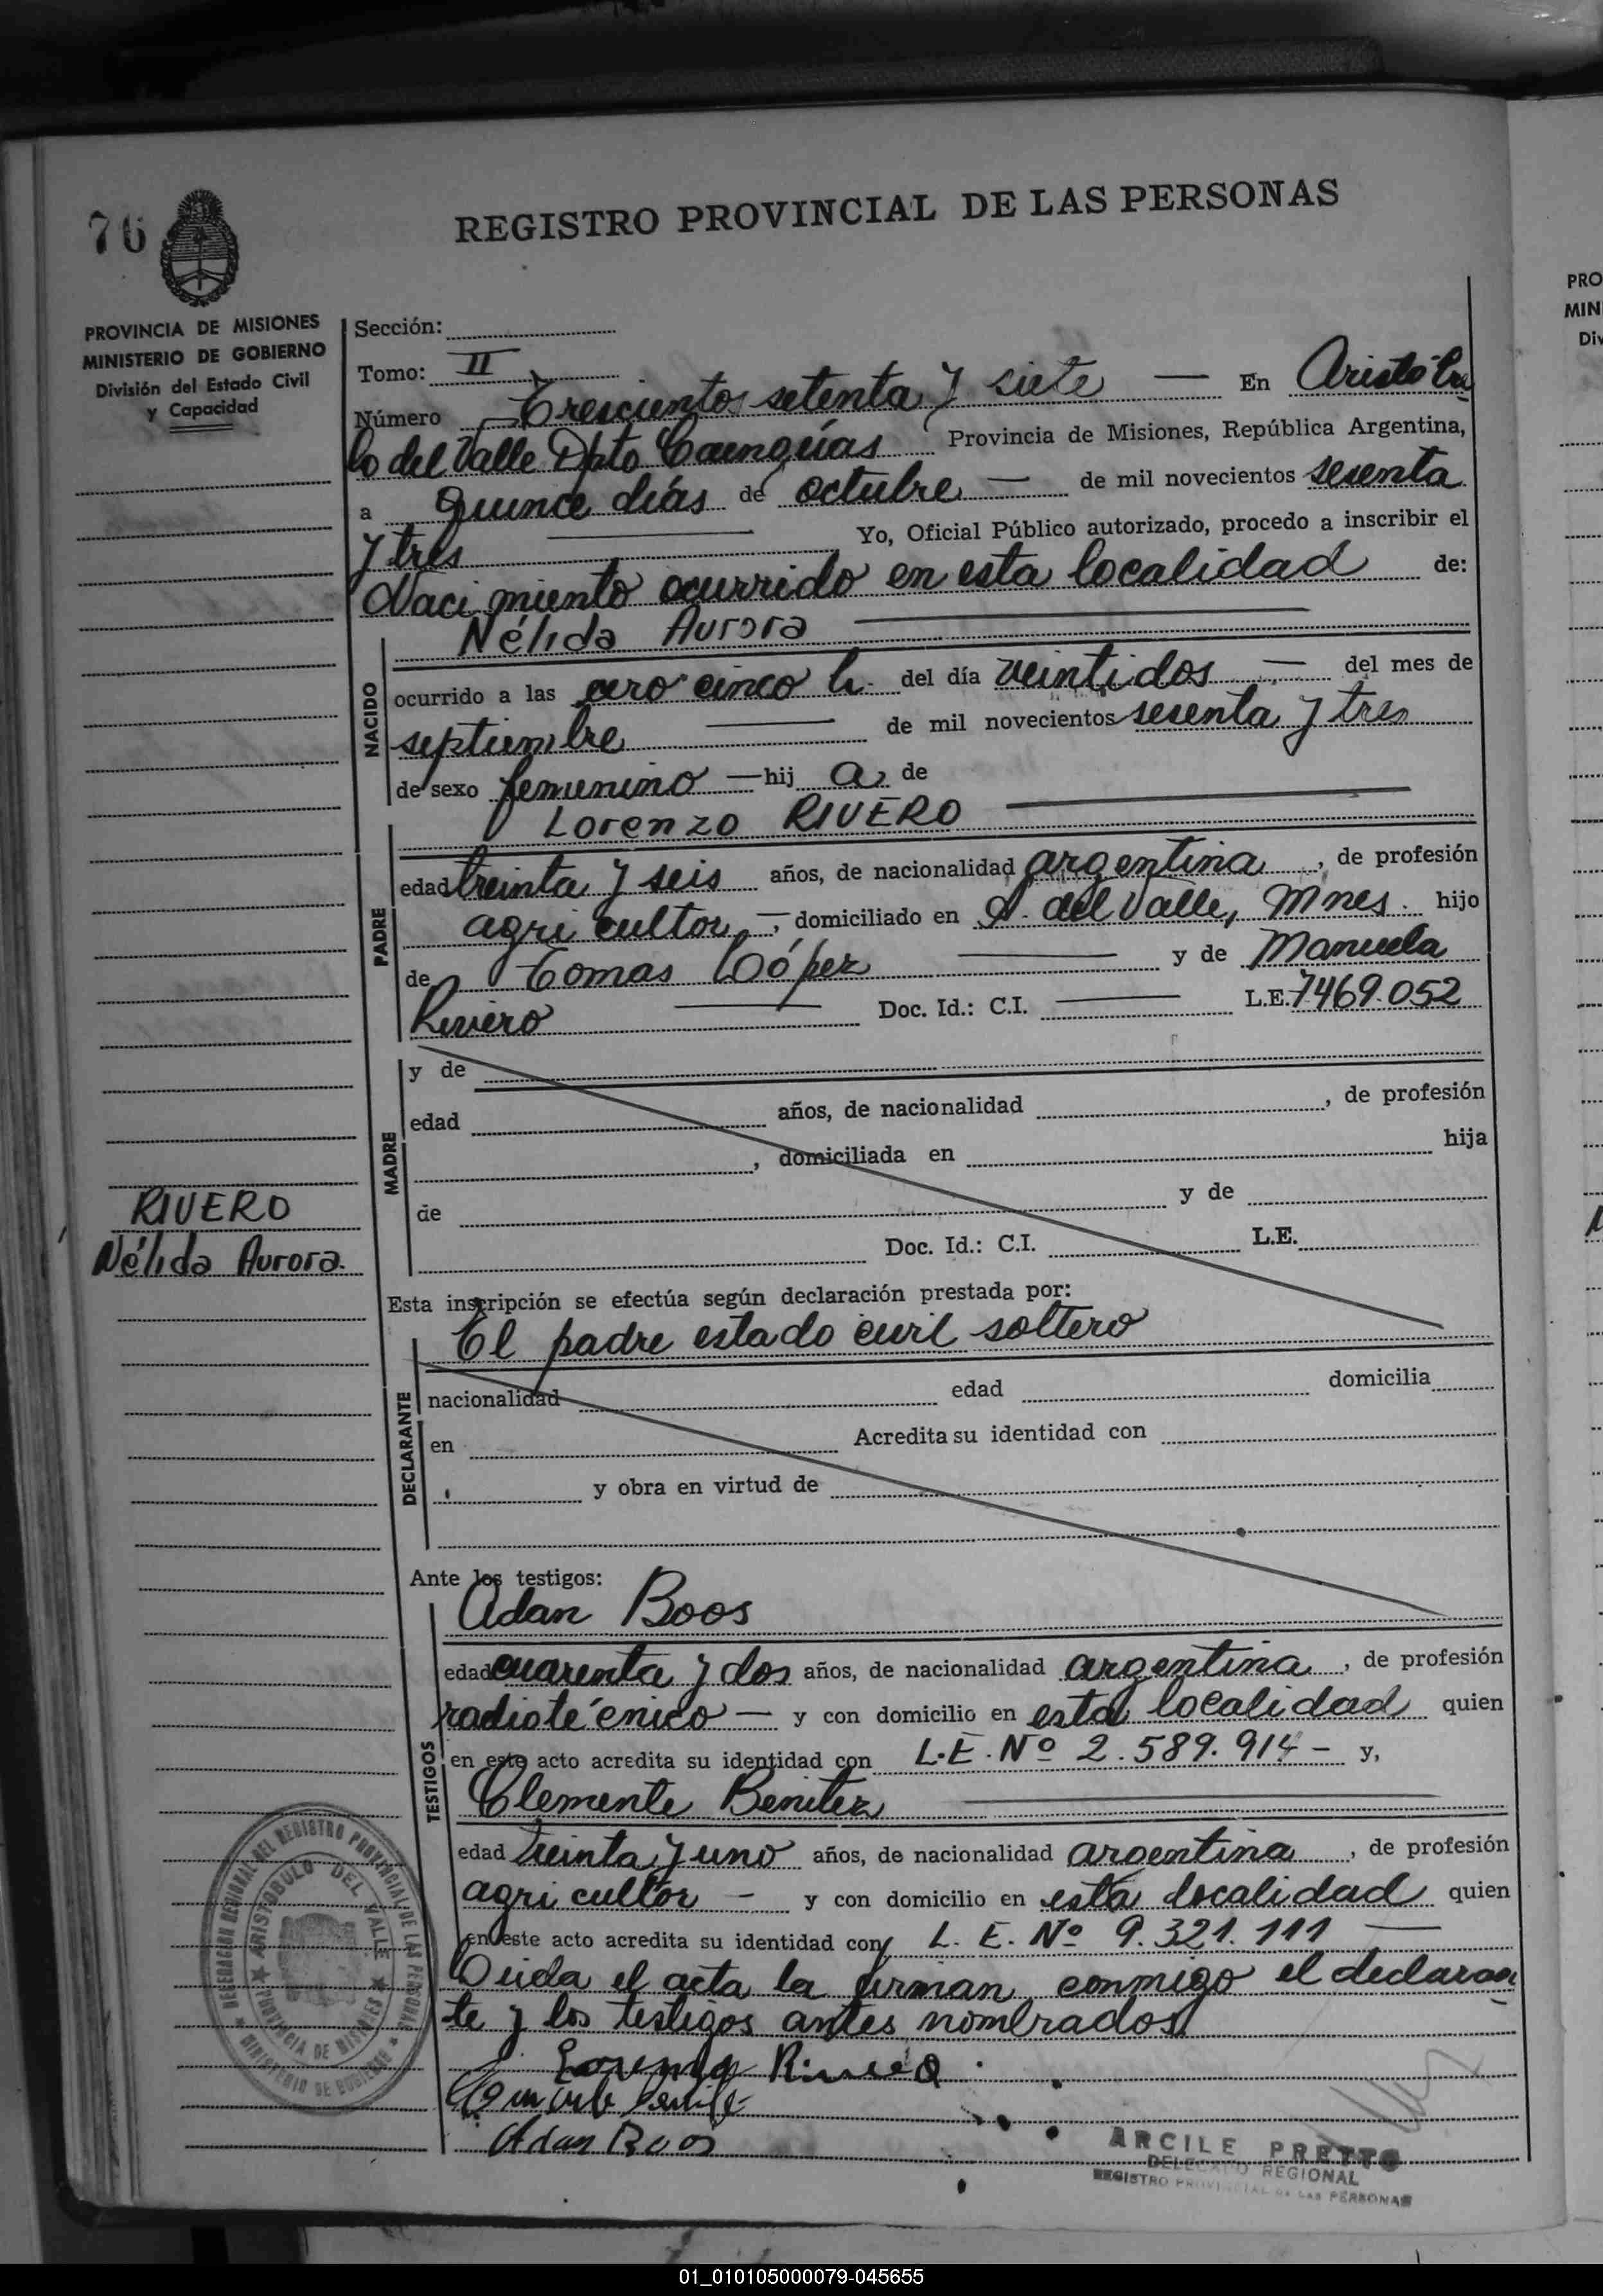 76
REGISTRO PROVINCIAL DE LAS PERSONAS
PROVINCIA DE MISIONES
MINISTERIO DE GOBIERNO
División del Estado Civil
y Capacidad
Sección:
Tomo: II
Número Trescientos setenta y siete — En Aristóbu
lo del Valle Dpto Cainguás Provincia de Misiones, República Argentina,
a quince días de octubre — de mil novecientos sesenta
y tres Yo, Oficial Público autorizado, procedo a inscribir el
Nacimiento ocurrido en esta localidad de:
NACIDO
Nélida Aurora
ocurrido a las cero cinco h. del día veintidos — del mes de
septiembre de mil novecientos sesenta y tres
de sexo femenino — hij a de
PADRE
Lorenzo RIVERO
edad treinta y seis años, de nacionalidad argentina, de profesión
agricultor —, domiciliado en A. del Valle, Mnes. hijo
de Tomas López y de Manuela
Rivero Doc. Id.: C.I. — L.E. 7469.052
MADRE
y de
edad años, de nacionalidad , de profesión
, domiciliada en hija
de y de
Doc. Id.: C.I. L.E.
RIVERO
Nélida Aurora.
Esta inscripción se efectúa según declaración prestada por:
El padre estado civil soltero
DECLARANTE
nacionalidad edad domicilia
en Acredita su identidad con
y obra en virtud de
Ante los testigos:
TESTIGOS
Adan Boos
edad cuarenta y dos años, de nacionalidad argentina, de profesión
radiotécnico — y con domicilio en esta localidad quien
en este acto acredita su identidad con L.E. Nº 2.589.914 - y,
Clemente Benitez
edad treinta y uno años, de nacionalidad argentina, de profesión
agricultor - y con domicilio en esta localidad quien
en este acto acredita su identidad con L. E. Nº 9.321.111 —
Leida el acta la firman conmigo el declaran
te y los testigos antes nombrados
Lorenzo Rivero
Adan Boos
DELEGACION REGIONAL DEL REGISTRO PROVINCIAL DE LAS PERSONAS
★ MINISTERIO DE GOBIERNO ★
★ ARISTOBULO DEL VALLE ★
PROVINCIA DE MISIONES
ARCILE PRETTO
DELEGADO REGIONAL
REGISTRO PROVINCIAL DE LAS PERSONAS
PRO
MIN
Div
01_010105000079-045655